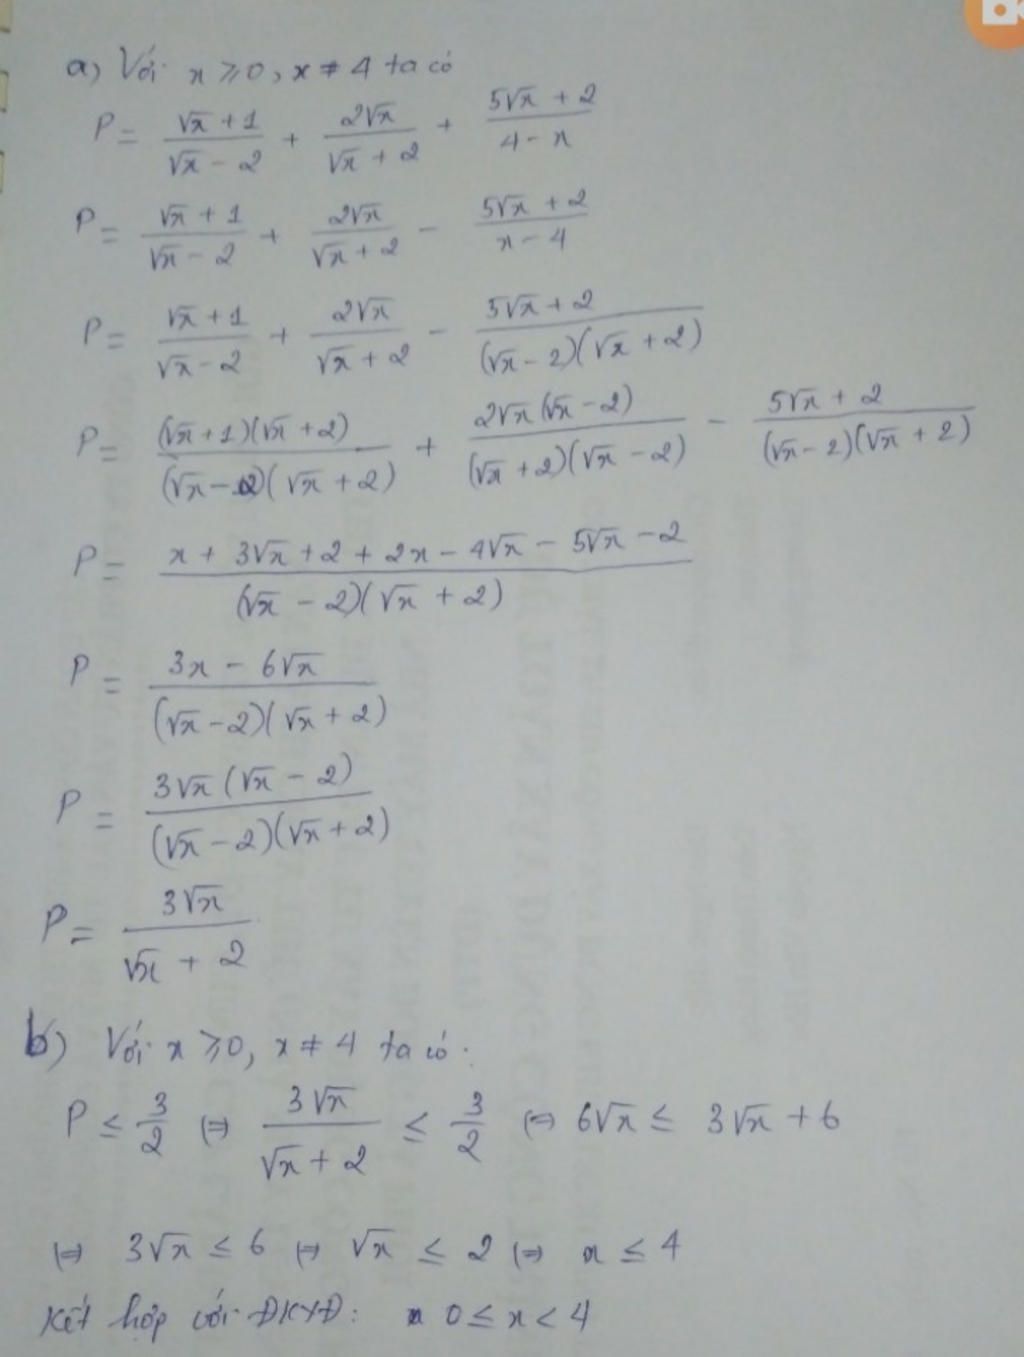 a) Với x ≥ 0, x ≠ 4 ta có
P = (√x + 1)/(√x - 2) + 2√x/(√x + 2) + (5√x + 2)/(4 - x)
P = (√x + 1)/(√x - 2) + 2√x/(√x + 2) - (5√x + 2)/(x - 4)
P = (√x + 1)/(√x - 2) + 2√x/(√x + 2) - (5√x + 2)/((√x - 2)(√x + 2))
P = ((√x + 1)(√x + 2))/((√x - 2)(√x + 2)) + (2√x(√x - 2))/((√x + 2)(√x - 2)) - (5√x + 2)/((√x - 2)(√x + 2))
P = (x + 3√x + 2 + 2x - 4√x - 5√x - 2)/((√x - 2)(√x + 2))
P = (3x - 6√x)/((√x - 2)(√x + 2))
P = (3√x(√x - 2))/((√x - 2)(√x + 2))
P = 3√x/(√x + 2)
b) Với x ≥ 0, x ≠ 4 ta có:
P ≤ 3/2 ⇔ 3√x/(√x + 2) ≤ 3/2 ⇔ 6√x ≤ 3√x + 6
⇔ 3√x ≤ 6 ⇔ √x ≤ 2 ⇔ x ≤ 4
Kết hợp với ĐKXĐ: 0 ≤ x < 4